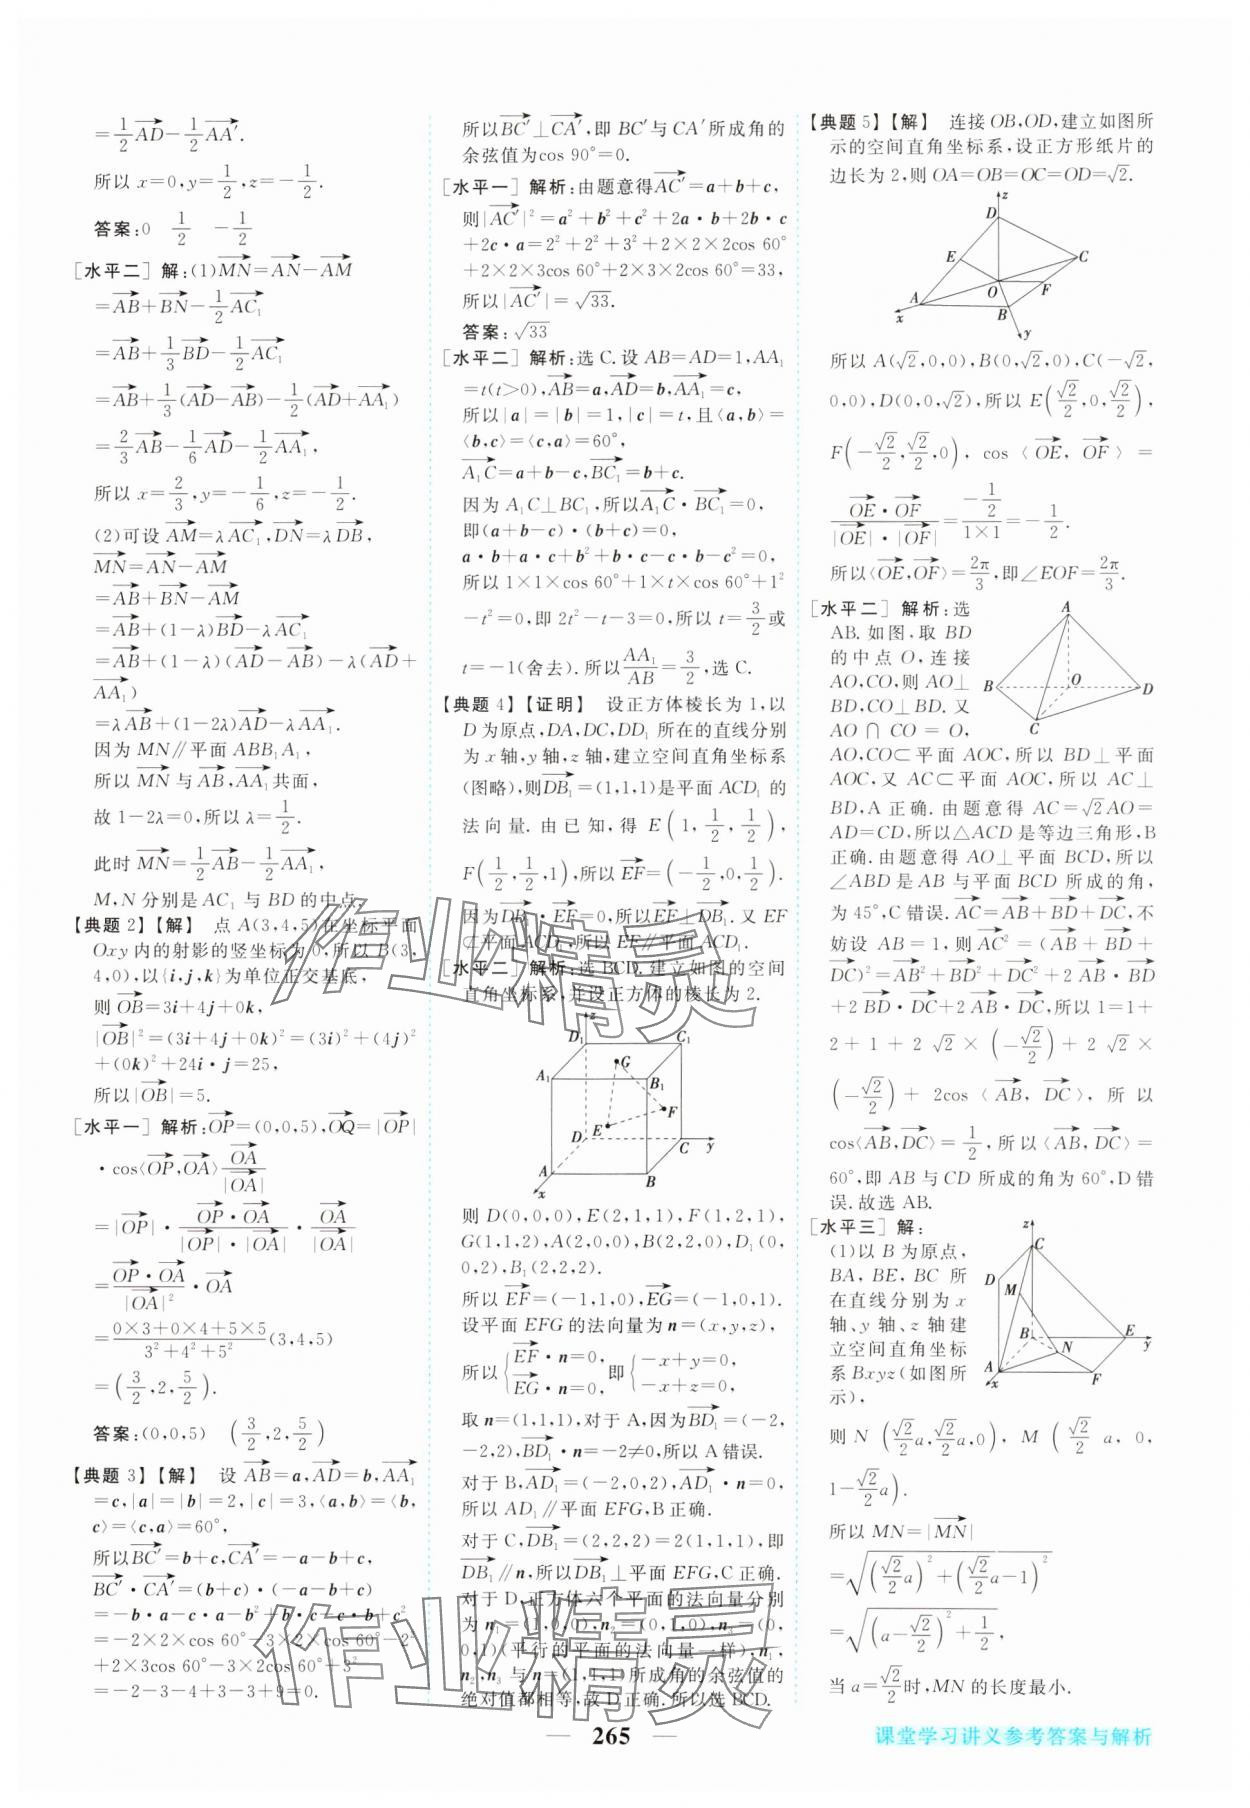 =1/2 AD→ - 1/2 AA′→.
所以 x=0,y=1/2,z=-1/2.
答案:0  1/2  -1/2
[水平二] 解:(1)MN→=AN→-AM→
=AB→+BN→-1/2 AC₁→
=AB→+1/3 BD→-1/2 AC₁→
=AB→+1/3(AD→-AB→)-1/2(AD→+AA₁→)
=2/3 AB→-1/6 AD→-1/2 AA₁→,
所以 x=2/3,y=-1/6,z=-1/2.
(2)可设 AM→=λAC₁→,DN→=λDB→,
MN→=AN→-AM→
=AB→+BN→-AM→
=AB→+(1-λ)BD→-λAC₁→
=AB→+(1-λ)(AD→-AB→)-λ(AD→+
AA₁→)
=λAB→+(1-2λ)AD→-λAA₁→.
因为 MN∥平面 ABB₁A₁,
所以 MN→ 与 AB→,AA₁→共面,
故 1-2λ=0,所以 λ=1/2.
此时 MN→=1/2 AB→-1/2 AA₁→,
M,N 分别是 AC₁ 与 BD 的中点.
【典题 2】【解】 点 A(3,4,5)在坐标平面
Oxy 内的射影的竖坐标为 0,所以 B(3,
4,0),以{i,j,k}为单位正交基底,
则 OB→=3i+4j+0k,
|OB→|²=(3i+4j+0k)²=(3i)²+(4j)²
+(0k)²+24i·j=25,
所以|OB→|=5.
[水平一] 解析:OP→=(0,0,5),OQ→=|OP→|
·cos⟨OP→,OA→⟩ OA→/|OA→|
=|OP→|·(OP→·OA→)/(|OP→|·|OA→|)·OA→/|OA→|
=(OP→·OA→)/|OA→|²·OA→
=(0×3+0×4+5×5)/(3²+4²+5²)(3,4,5)
=(3/2,2,5/2).
答案:(0,0,5)  (3/2,2,5/2)
【典题 3】【解】 设 AB→=a,AD→=b,AA₁→
=c,|a|=|b|=2,|c|=3,⟨a,b⟩=⟨b,
c⟩=⟨c,a⟩=60°,
所以BC′→=b+c,CA′→=-a-b+c,
BC′→·CA′→=(b+c)·(-a-b+c)
=-b·a-c·a-b²-c·b+b·c+c²
=-2×2×cos 60°-3×2×cos 60°-2²
+2×3cos 60°-3×2cos 60°+3²
=-2-3-4+3-3+9=0.
所以BC′→⊥CA′→,即 BC′与 CA′所成角的
余弦值为cos 90°=0.
[水平一] 解析:由题意得AC′→=a+b+c,
则|AC′→|²=a²+b²+c²+2a·b+2b·c
+2c·a=2²+2²+3²+2×2×2cos 60°
+2×2×3cos 60°+2×3×2cos 60°=33,
所以|AC′→|=√33.
答案:√33
[水平二] 解析:选 C.设 AB=AD=1,AA₁
=t(t>0),AB→=a,AD→=b,AA₁→=c,
所以|a|=|b|=1,|c|=t,且⟨a,b⟩=
⟨b,c⟩=⟨c,a⟩=60°,
A₁C→=a+b-c,BC₁→=b+c.
因为 A₁C⊥BC₁,所以A₁C→·BC₁→=0,
即(a+b-c)·(b+c)=0,
a·b+a·c+b²+b·c-c·b-c²=0,
所以 1×1×cos 60°+1×t×cos 60°+1²
-t²=0,即 2t²-t-3=0,所以 t=3/2或
t=-1(舍去).所以AA₁/AB=3/2,选 C.
【典题 4】【证明】 设正方体棱长为 1,以
D 为原点,DA,DC,DD₁ 所在的直线分别
为 x 轴,y 轴,z 轴,建立空间直角坐标系
(图略),则DB₁→=(1,1,1)是平面 ACD₁ 的
法向量.由已知,得 E(1,1/2,1/2),
F(1/2,1/2,1),所以 EF→=(-1/2,0,1/2).
因为DB₁→·EF→=0,所以EF→⊥DB₁→.又 EF
⊄平面 ACD₁,所以 EF∥平面 ACD₁.
[水平二] 解析:选 BCD.建立如图的空间
直角坐标系,并设正方体的棱长为 2.
z
D₁ C₁
G
A₁ B₁
F
E
D C y
A
x B
则 D(0,0,0),E(2,1,1),F(1,2,1),
G(1,1,2),A(2,0,0),B(2,2,0),D₁(0,
0,2),B₁(2,2,2).
所以 EF→=(-1,1,0),EG→=(-1,0,1).
设平面 EFG 的法向量为 n=(x,y,z),
所以{EF→·n=0, EG→·n=0, 即{-x+y=0, -x+z=0.
取 n=(1,1,1),对于 A,因为BD₁→=(-2,
-2,2),BD₁→·n=-2≠0,所以 A 错误.
对于 B,AD₁→=(-2,0,2),AD₁→·n=0,
所以 AD₁∥平面 EFG,B 正确.
对于 C,DB₁→=(2,2,2)=2(1,1,1),即
DB₁→∥n,所以DB₁→⊥平面 EFG,C 正确.
对于 D,正方体六个平面的法向量分别
为 n₁=(1,0,0),n₂=(0,1,0),n₃=(0,
0,1)(平行的平面的法向量一样),n₁,
n₂,n₃ 与 n=(1,1,1)所成角的余弦值的
绝对值都相等,故 D 正确.所以选 BCD.
【典题 5】【解】 连接 OB,OD,建立如图所
示的空间直角坐标系,设正方形纸片的
边长为 2,则 OA=OB=OC=OD=√2.
z
D
E C
O F
A B
x y
所以 A(√2,0,0),B(0,√2,0),C(-√2,
0,0),D(0,0,√2),所以 E(√2/2,0,√2/2),
F(-√2/2,√2/2,0),cos⟨OE→,OF→⟩=
(OE→·OF→)/(|OE→|·|OF→|)=(-1/2)/(1×1)=-1/2.
所以⟨OE→,OF→⟩=2π/3,即∠EOF=2π/3.
[水平二] 解析:选
AB.如图,取 BD
的中点 O,连接
AO,CO,则 AO⊥
BD,CO⊥BD.又
AO∩CO=O,
A
B O D
C
AO,CO⊂平面 AOC,所以 BD⊥平面
AOC,又 AC⊂平面 AOC,所以 AC⊥
BD,A 正确.由题意得 AC=√2AO=
AD=CD,所以△ACD 是等边三角形,B
正确.由题意得 AO⊥平面 BCD,所以
∠ABD 是 AB 与平面 BCD 所成的角,
为 45°,C 错误.AC→=AB→+BD→+DC→,不
妨设 AB=1,则AC→²=(AB→+BD→+
DC→)²=AB→²+BD→²+DC→²+2AB→·BD→
+2BD→·DC→+2AB→·DC→,所以 1=1+
2+1+2√2×(-√2/2)+2√2×
(-√2/2)+2cos⟨AB→,DC→⟩,所以
cos⟨AB→,DC→⟩=1/2,所以⟨AB→,DC→⟩=
60°,即 AB 与 CD 所成的角为 60°,D 错
误.故选 AB.
[水平三] 解:
(1)以 B 为原点,
BA,BE,BC 所
在直线分别为 x
轴、y 轴、z 轴建
立空间直角坐标
系 Bxyz(如图所
示),
z
C
D
M
B E
N y
A
x F
则 N(√2/2a,√2/2a,0),M(√2/2a,0,
1-√2/2a).
所以 MN=|MN→|
=√((√2/2a)²+(√2/2a-1)²)
=√((a-√2/2)²+1/2),
当 a=√2/2时,MN 的长度最小.
作业精灵
作业精灵
— 265 —
课堂学习讲义参考答案与解析